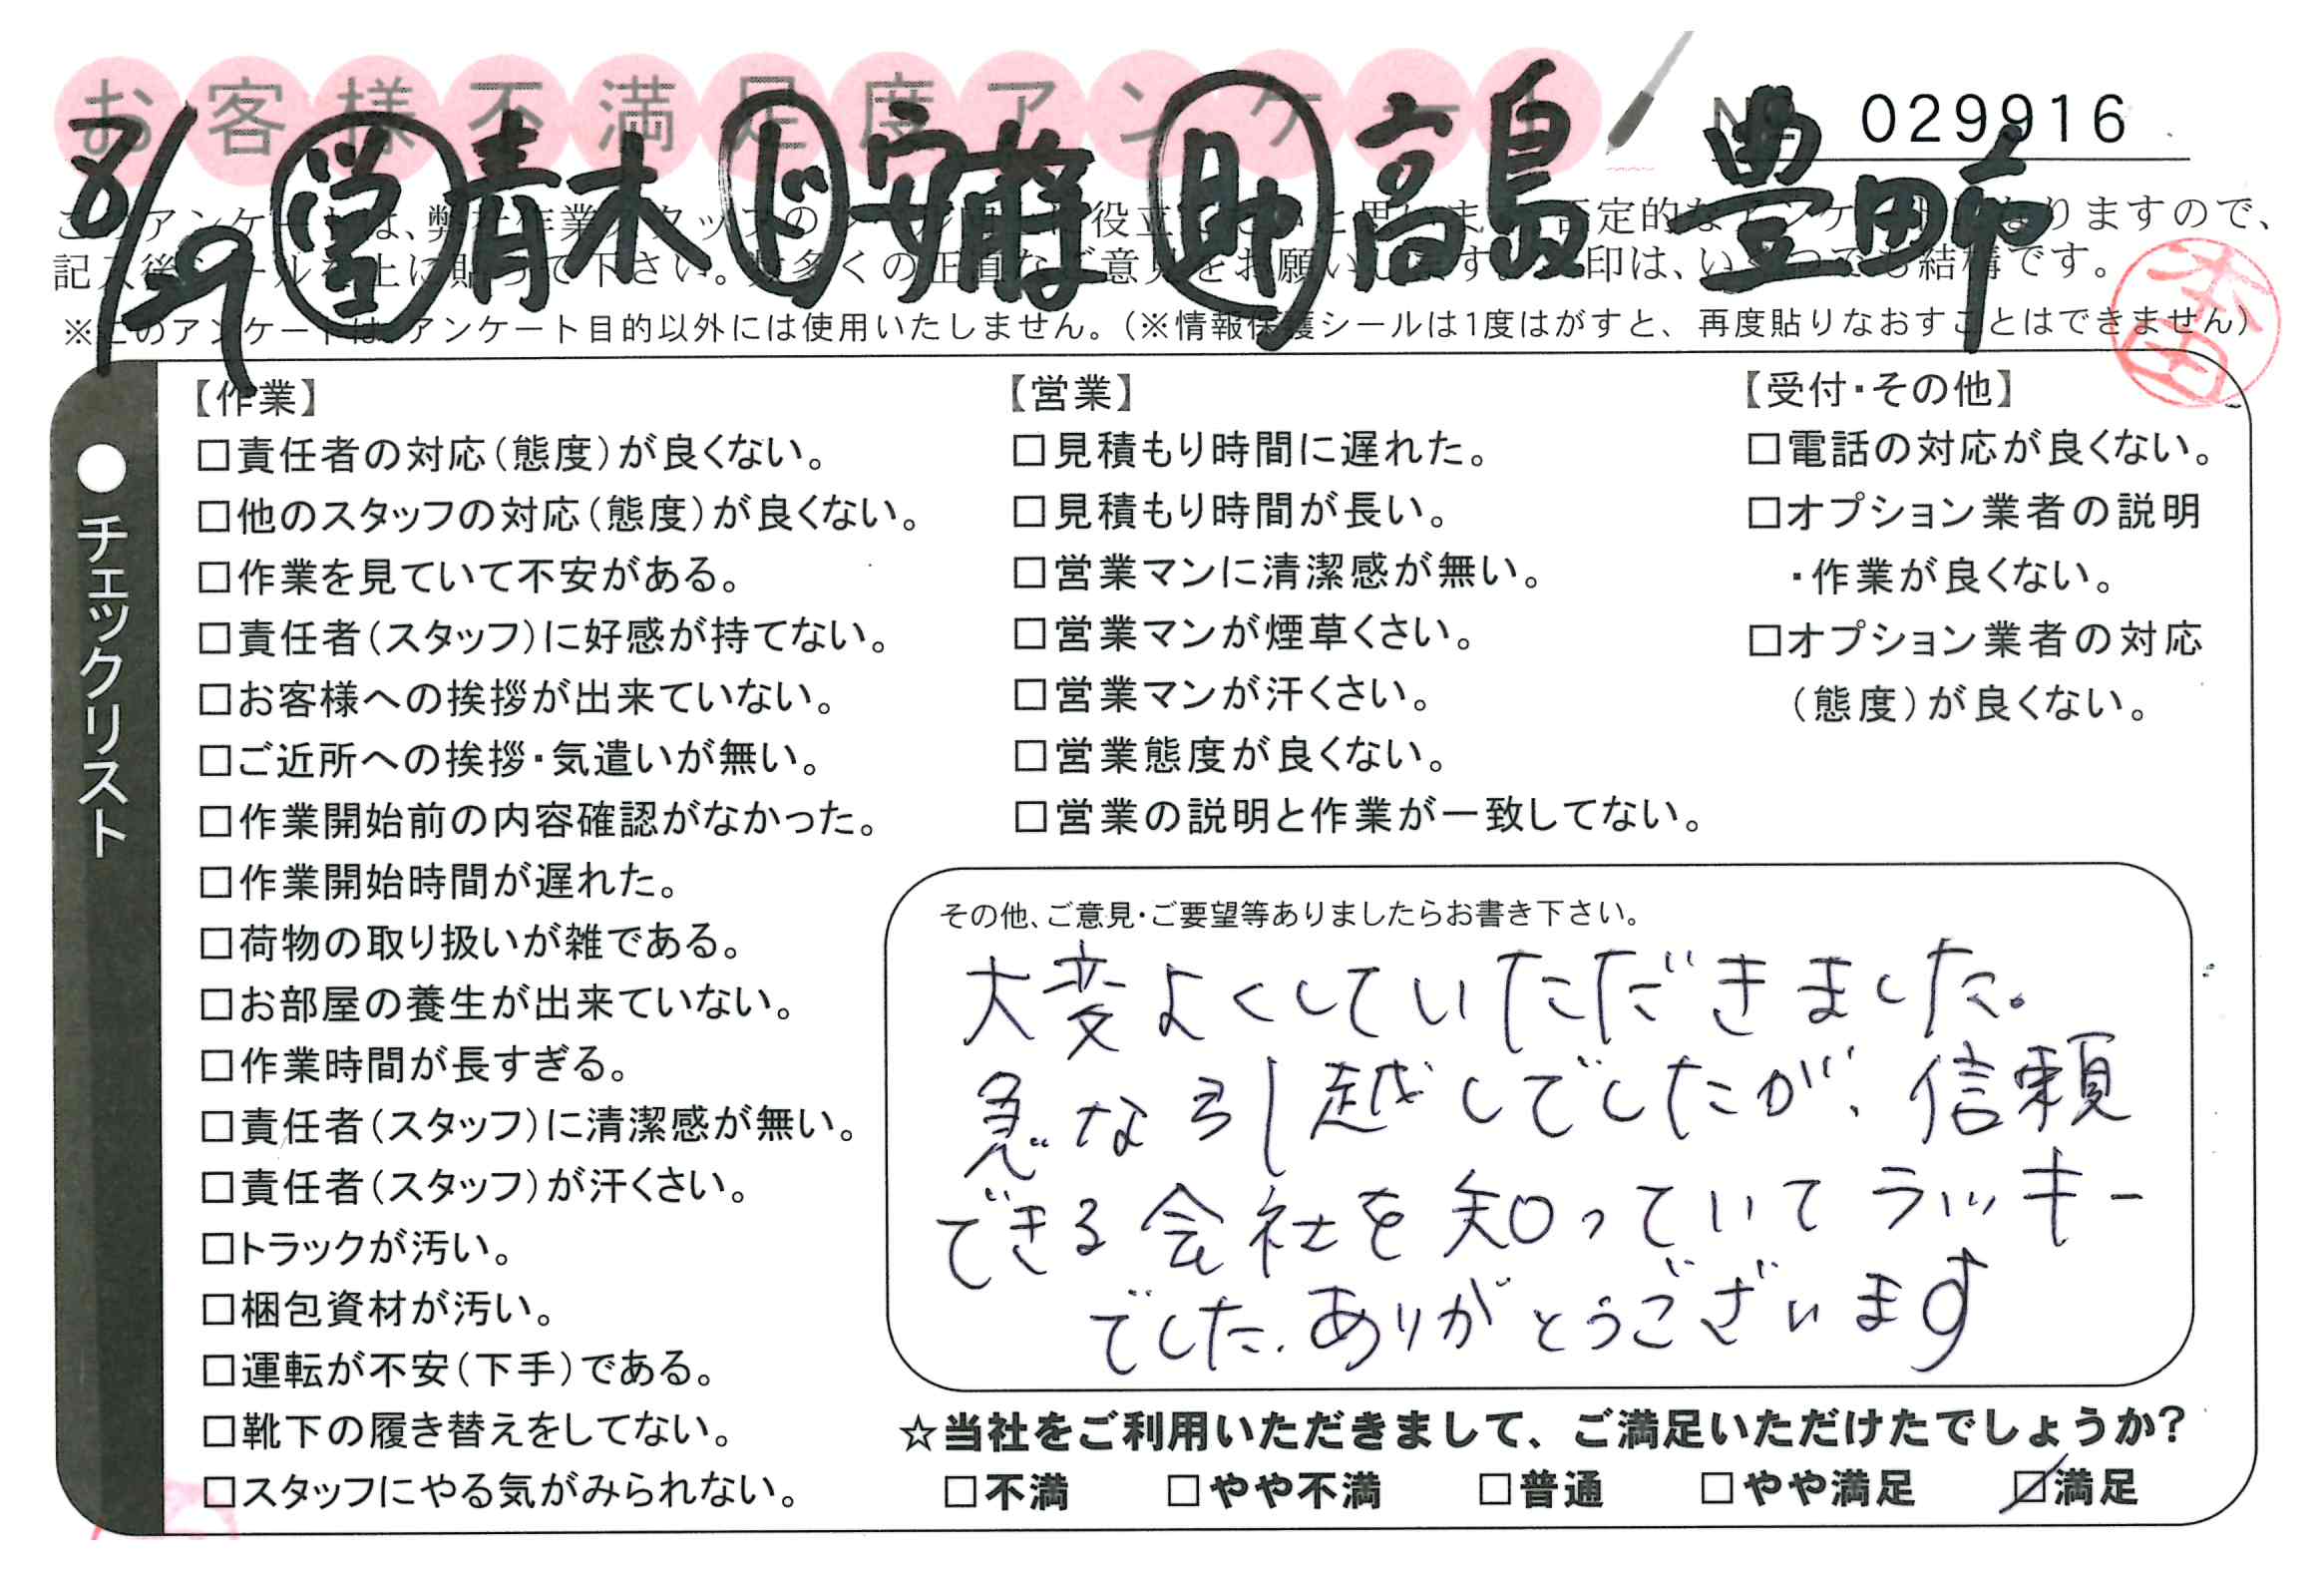 お客様不満足度アンケート
№ 029916
8/29 ㊂営 青木 ド 安藤 助 高島 豊田
記入後シールを上に貼って下さい。数多くの正直なご意見をお願いします。印は、いくつでも結構です。
※このアンケートは、アンケート目的以外には使用いたしません。(※情報保護シールは1度はがすと、再度貼りなおすことはできません)
本田
●チェックリスト
【作業】
□責任者の対応(態度)が良くない。
□他のスタッフの対応(態度)が良くない。
□作業を見ていて不安がある。
□責任者(スタッフ)に好感が持てない。
□お客様への挨拶が出来ていない。
□ご近所への挨拶・気遣いが無い。
□作業開始前の内容確認がなかった。
□作業開始時間が遅れた。
□荷物の取り扱いが雑である。
□お部屋の養生が出来ていない。
□作業時間が長すぎる。
□責任者(スタッフ)に清潔感が無い。
□責任者(スタッフ)が汗くさい。
□トラックが汚い。
□梱包資材が汚い。
□運転が不安(下手)である。
□靴下の履き替えをしてない。
□スタッフにやる気がみられない。
【営業】
□見積もり時間に遅れた。
□見積もり時間が長い。
□営業マンに清潔感が無い。
□営業マンが煙草くさい。
□営業マンが汗くさい。
□営業態度が良くない。
□営業の説明と作業が一致してない。
【受付・その他】
□電話の対応が良くない。
□オプション業者の説明
・作業が良くない。
□オプション業者の対応
(態度)が良くない。
その他、ご意見・ご要望等ありましたらお書き下さい。
大変よくしていただきました。
急な引越しでしたが、信頼
できる会社を知っていてラッキー
でした。ありがとうございます
☆当社をご利用いただきまして、ご満足いただけたでしょうか?
□不満 □やや不満 □普通 □やや満足 ☑満足